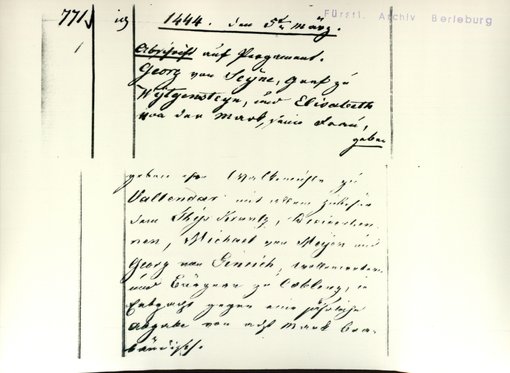 Fürstl. Archiv Berleburg
771. 1444. den 5t. März.
Abschrift auf Pergament.
Georg von Seyne, Graf zu
Wytgensteyn, und Elisabeth
von der Mark, seine Frau,
geben
geben die Walkmühle zu
Vallendar mit allem Zubehör
dem Thijs Krantz,
Michael von Meyen und
Georg von
und Bürgern zu Coblenz, in
Erbpacht gegen eine jährliche
Abgabe von acht Mark Bra-
bändisch.